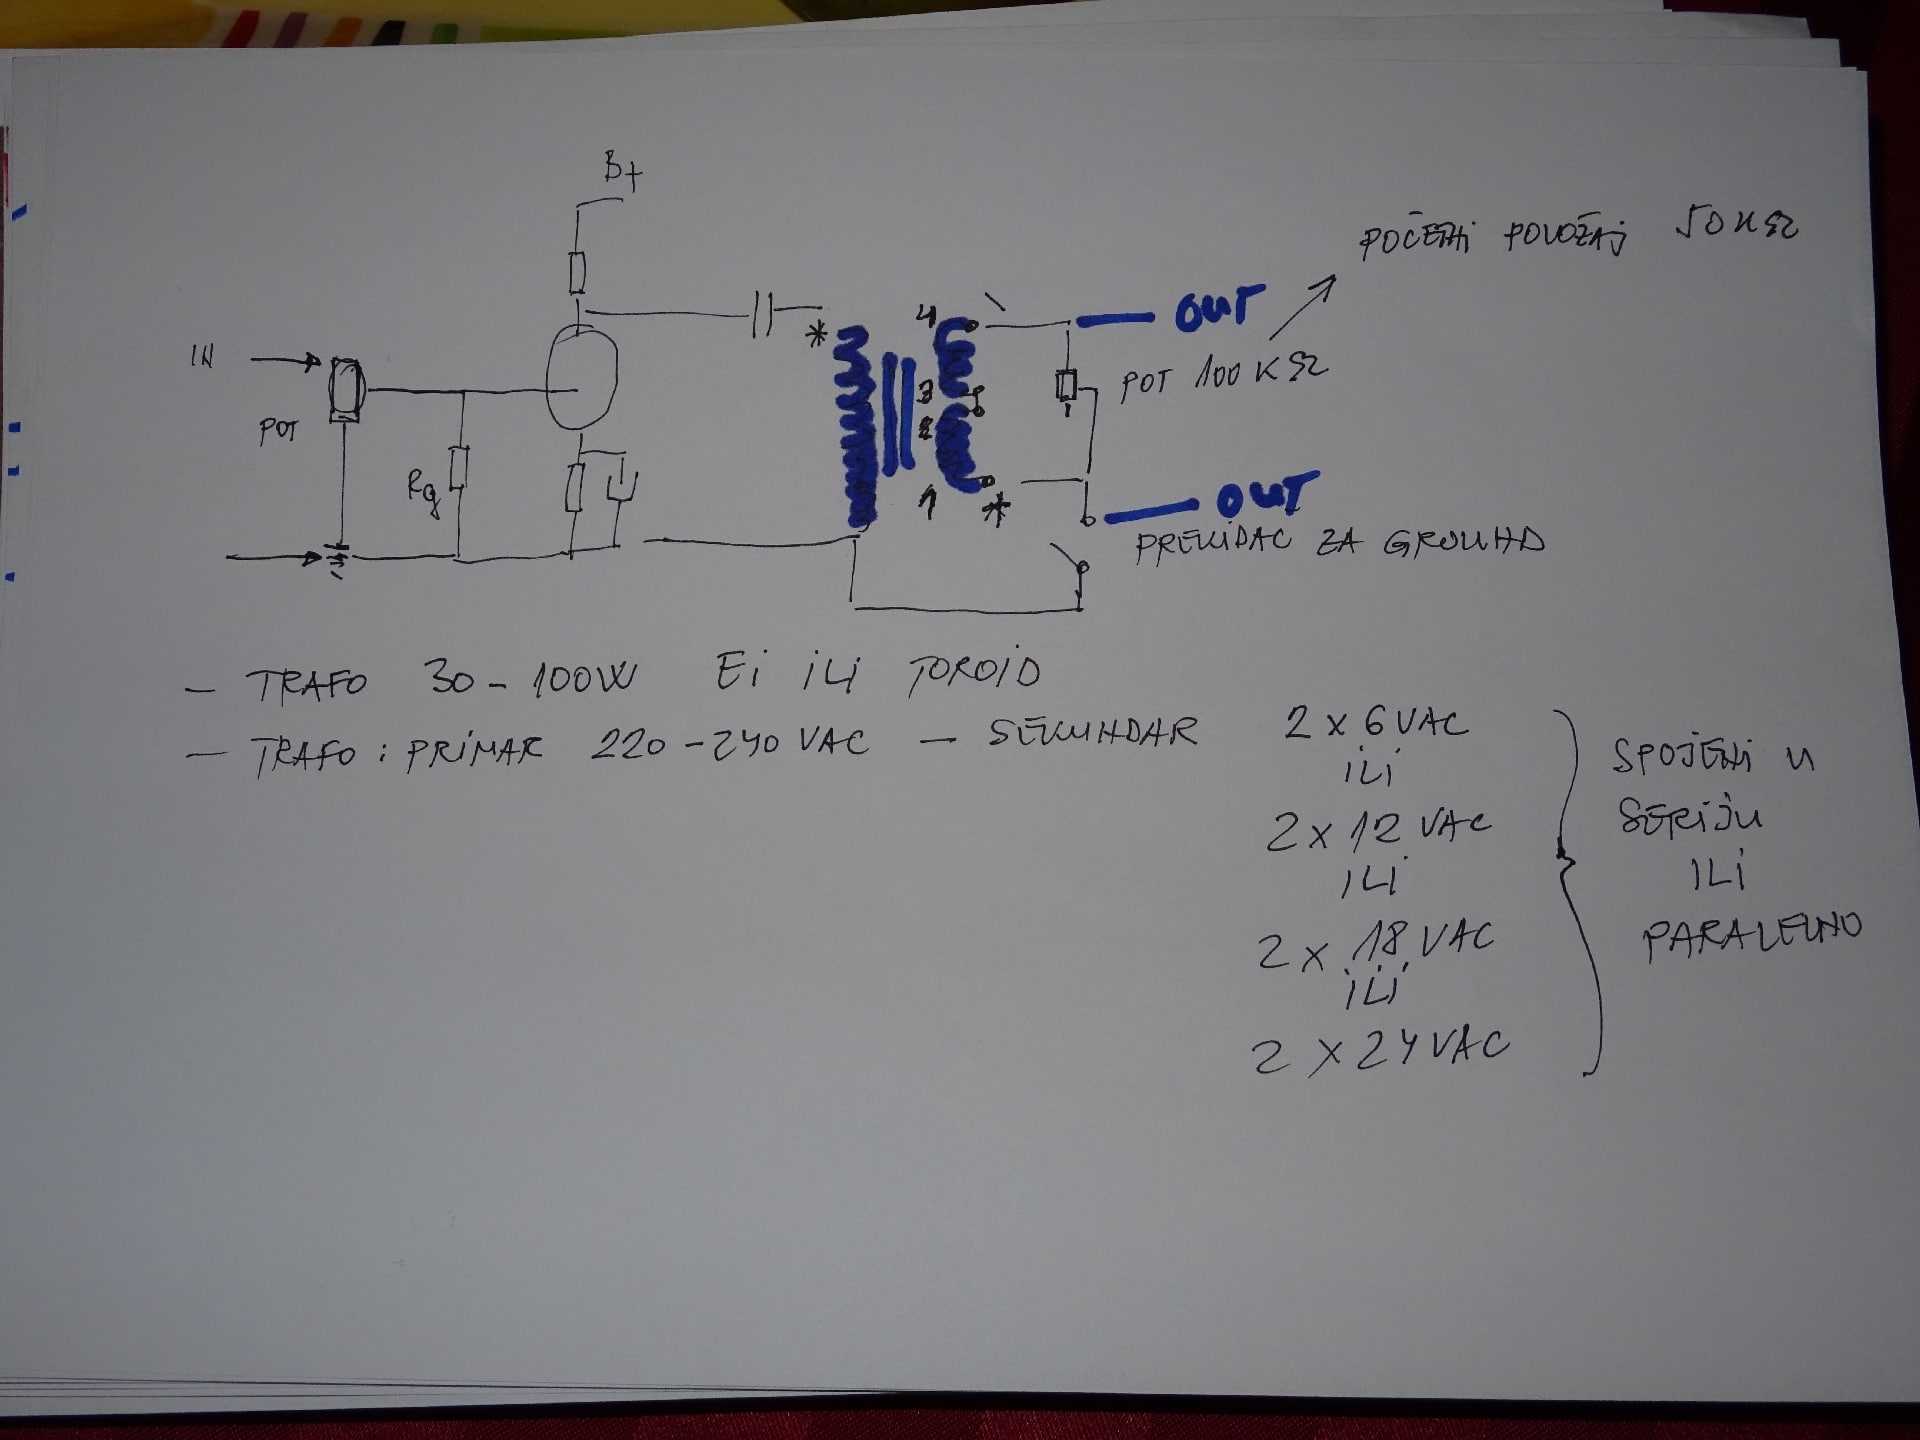 B+
POČETNI POLOŽAJ 50KΩ
OUT
IN
*
4
POT 100KΩ
3
POT
2
Rg
1
*
OUT
PREKIDAČ ZA GROUND
- TRAFO 30-100W Ei ili TOROiD
- TRAFO: PRIMAR 220-240 VAC - SEKUNDAR
2 x 6 VAC
iLi
2 x 12 VAC
iLi
2 x 18 VAC
iLi
2 x 24 VAC
SPOJENi U
SERiJU
iLi
PARALELNO